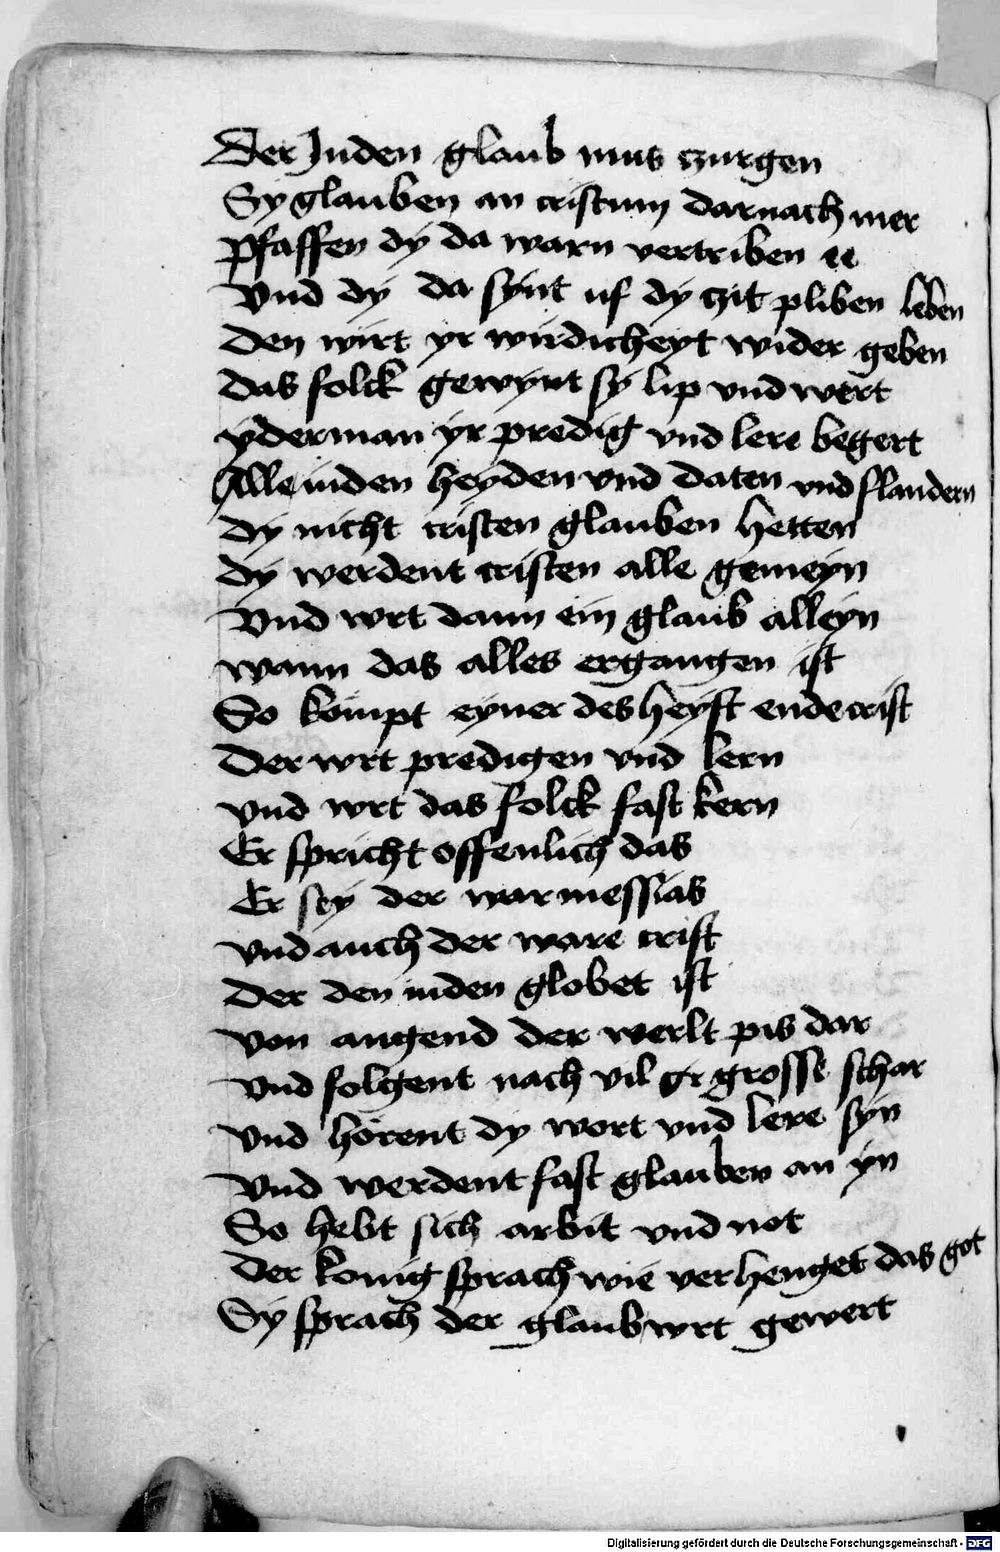 Der Juden glaub mus czurgen
Sy glauben an cristum darnach mer
pfaffen dy da warn vertriben
Vnd dy da synt uf dy czit pliben leben
Den wirt yr wirdicheyt wider geben
Das folck gewynt sy lip vnd wert
yderman yr predig vnd lere begert
Alle iuden heyden vnd daten vnd flandern
Dy nicht cristen glauben hetten
Dy werdent cristen alle gemeyn
Vnd wrt dann ein glaub alleyn
wann das alles ergangen ist
So kompt eyner des heyst endecrist
Der wrt predigen vnd lern
vnd wrt das folck fast kern
Er spricht offenlich das
Er sey der war messias
vnd auch der ware crist
Der den iuden globet ist
von angend der werlt pis dar
vnd folgent nach vil gr grosse schar
vnd horent dy wort vnd lere syn
vnd werdent fast glauben an yn
So hebt sich arbit vnd not
Der konig sprach wie verhenget das got
Sy sprach der glaub wrt gewert
Digitalisierung gefördert durch die Deutsche Forschungsgemeinschaft - DFG